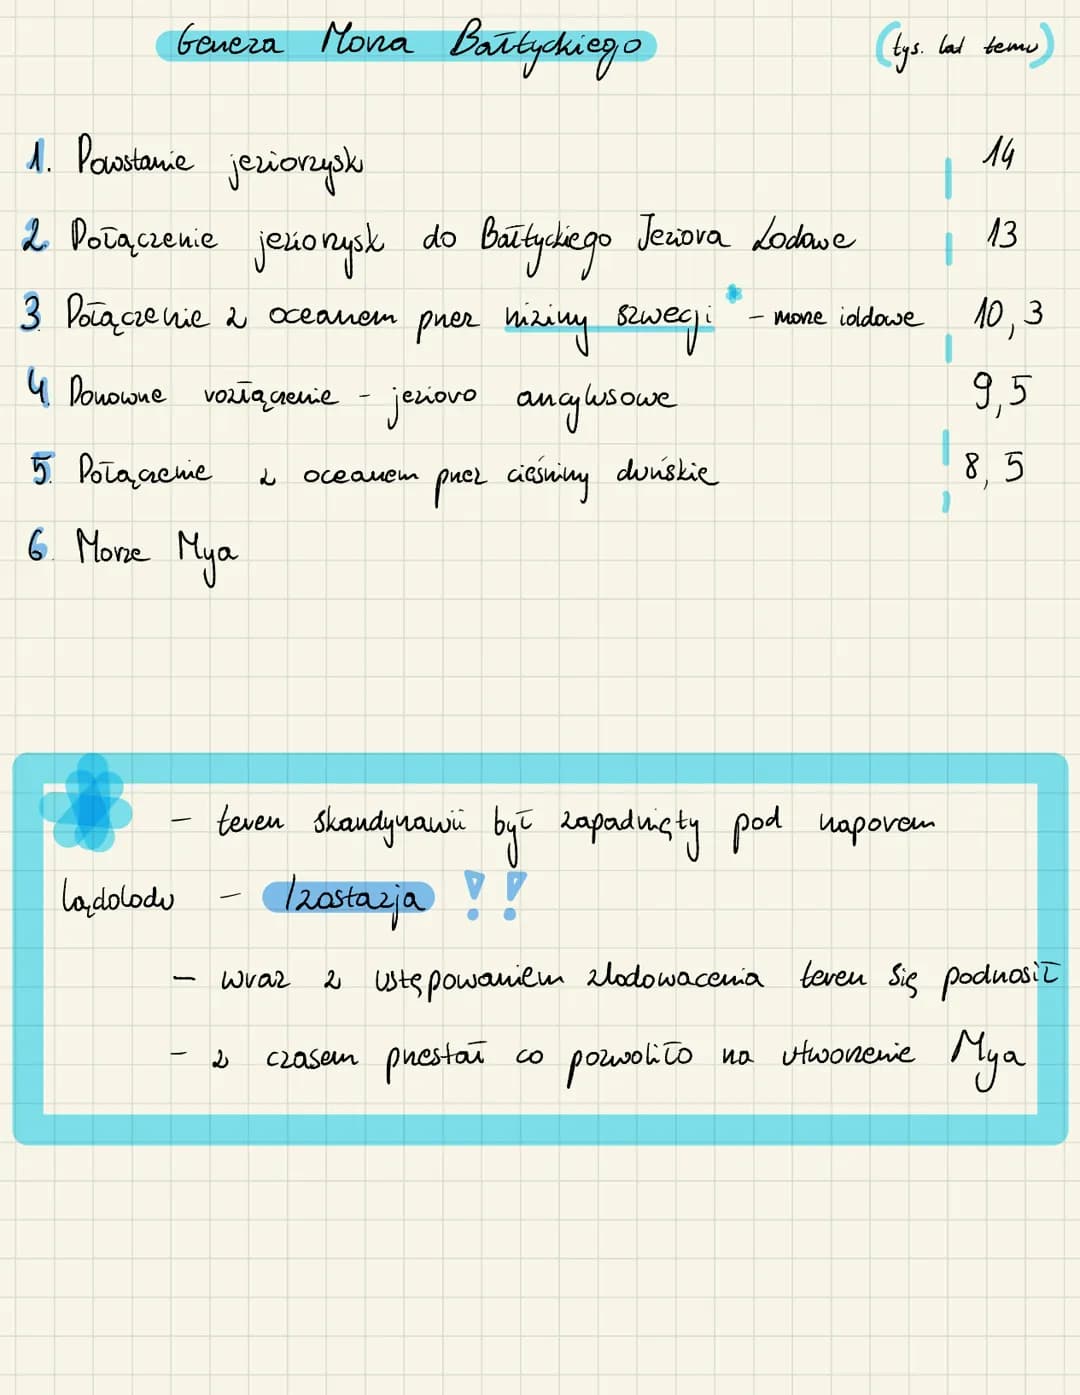 Geneza Morza Bałtyckiego (tys. lat temu)
1. Powstanie jeziorzysk 14
2. Połączenie jeziorzysk do Bałtyckiego Jeziora Lodowe 13
3. Połączenie z oceanem przez niziny szwecji * - morze ioldowe 10,3
4. Ponowne rozłączenie - jezioro ancylusowe 9,5
5. Połączenie z oceanem przez cieśniny duńskie 8,5
6. Morze Mya
- teren skandynawii był zapadnięty pod naporem
lądolodu - Izostazja !!
- wraz z ustępowaniem zlodowacenia teren się podnosił
- z czasem przestał co pozwoliło na utworzenie Mya